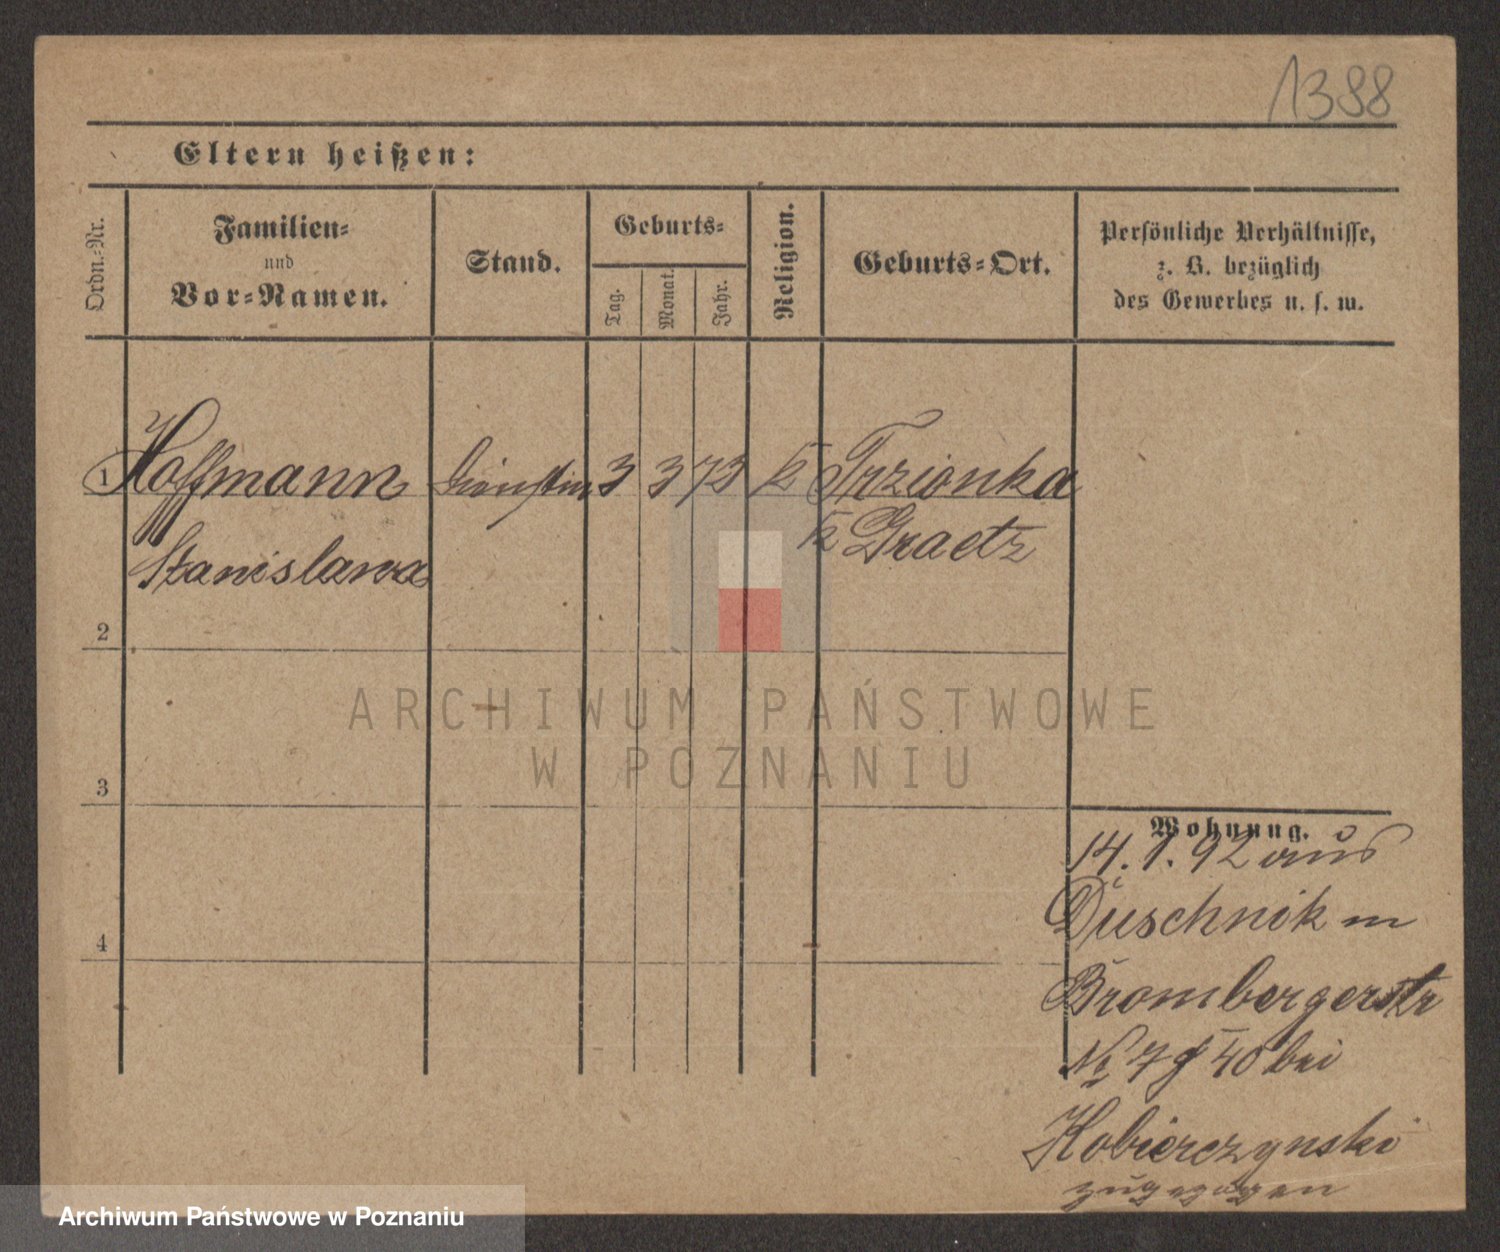 1388
Eltern heißen:
Ordn.-Nr.
Familien-
und
Vor-Namen.
Stand.
Geburts-
Tag.
Monat.
Jahr.
Religion.
Geburts-Ort.
Persönliche Verhältnisse,
z. B. bezüglich
des Gewerbes u. s. w.
1 Hoffmann 3 3 73 k Trzionka
Graetz
Stanislawa
2
3
4
ARCHIWUM PAŃSTWOWE
W POZNANIU
Wohnung.
14. 1. 92 aus
Duschnik
Brombergerstr
№ 7 40 bei
Kobierczynski
zugezogen
Archiwum Państwowe w Poznaniu